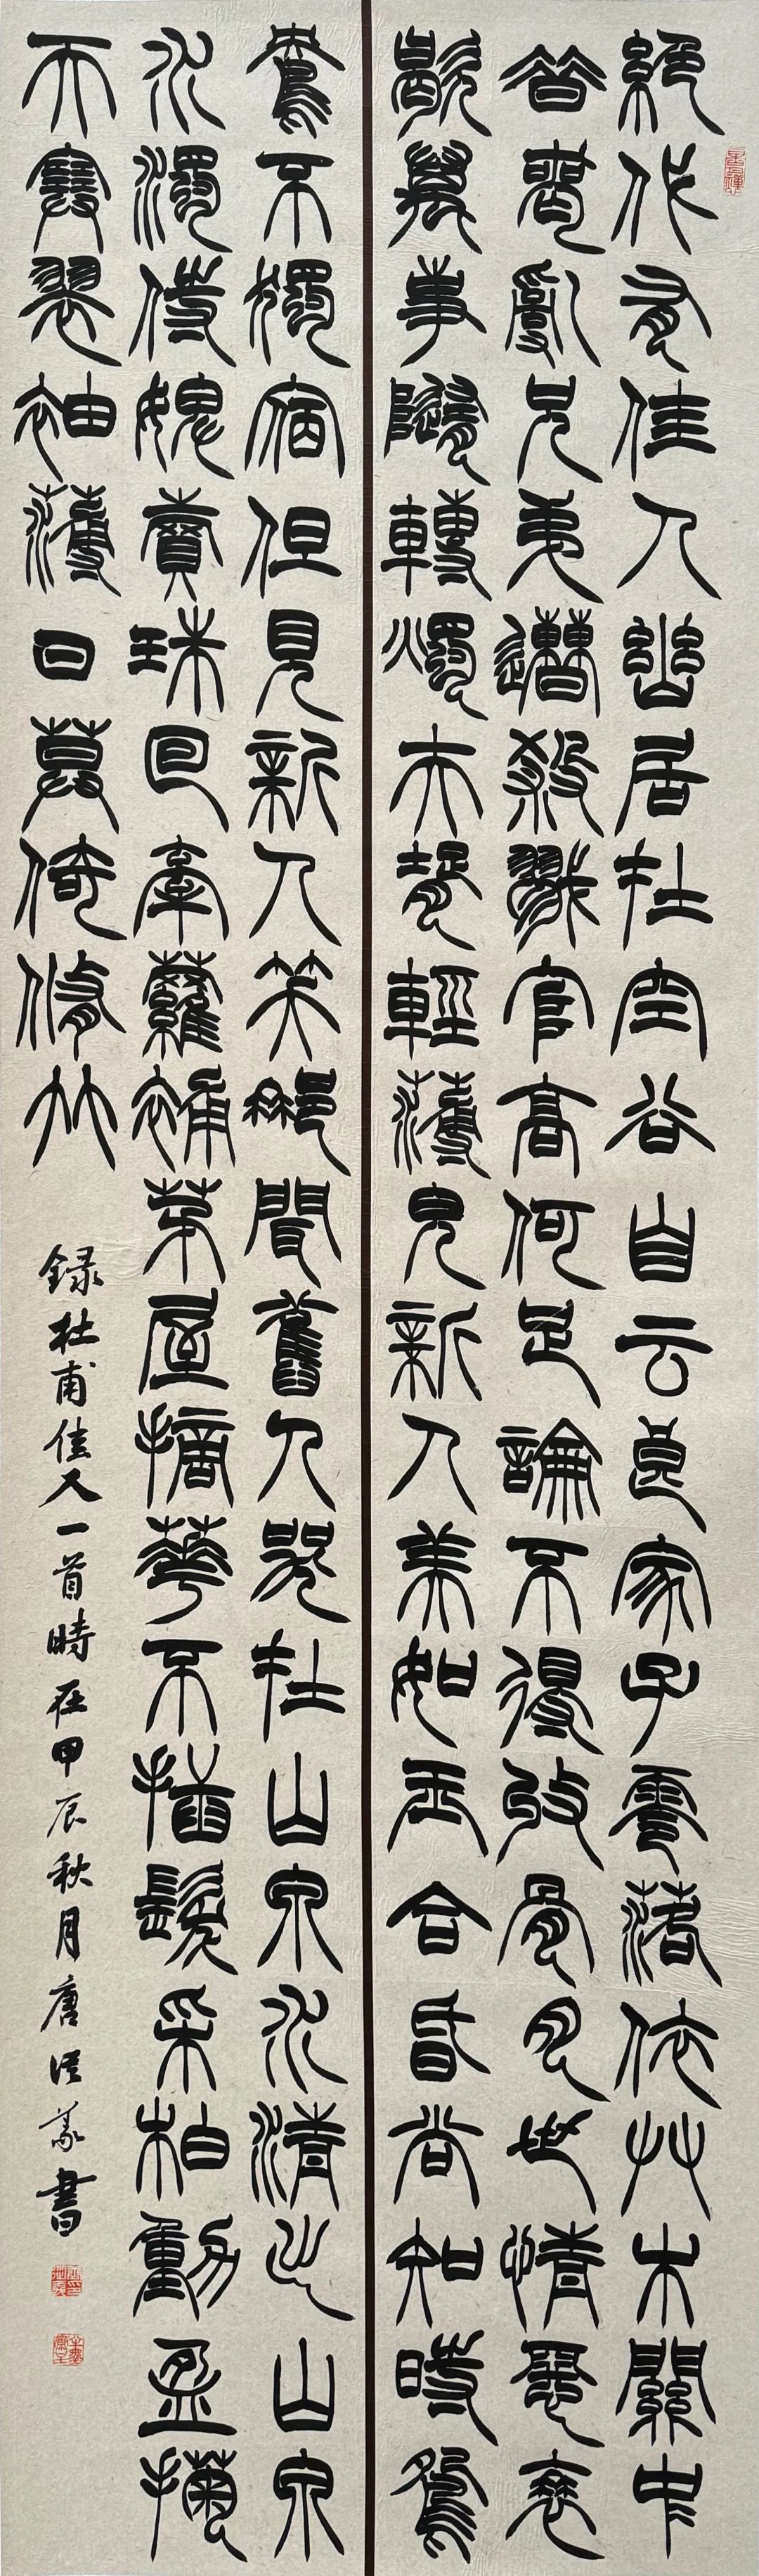 絕代有佳人幽居在空谷自云良家子零落依艸木關中
昔喪亂兄弟遭殺戮官高何足論不得收骨肉世情惡衰
歇萬事隨轉燭夫壻輕薄兒新人美如玉合昏尚知時鴛
鴦不獨宿但見新人笑那聞舊人哭在山泉水清出山泉
水濁侍婢賣珠回牽蘿補茅屋摘華不插髮采柏動盈掬
天寒翠袖薄日暮倚脩竹
錄杜甫佳人一首時在甲辰秋月唐書